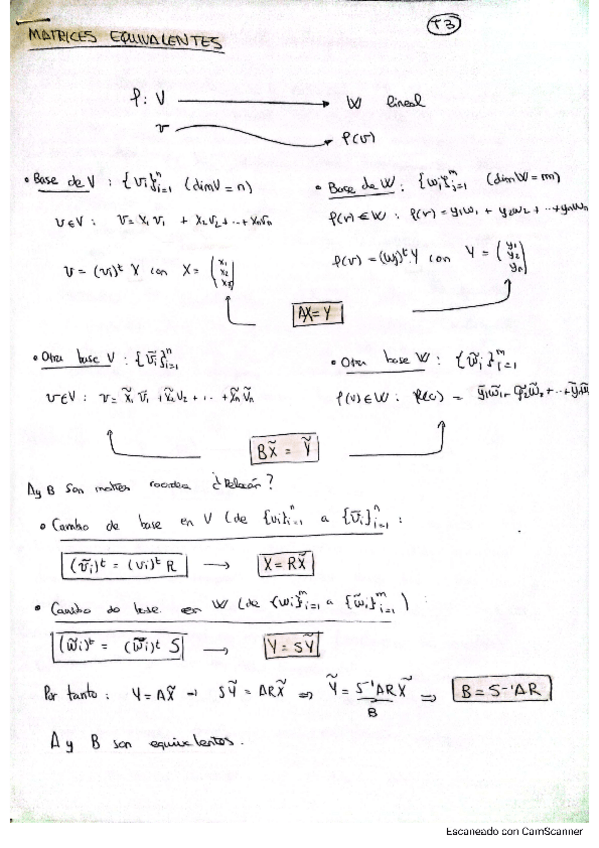 T3
MATRICES EQUIVALENTES
f: V ⟶ W lineal
v ⟶ f(v)
• Base de V : {vi}ⁿᵢ₌₁ (dimV = n)
v∈V : v = x₁v₁ + x₂v₂ + ... + xₙvₙ
v = (vi)ᵗ X con X = (x₁ x₂ x₃)
• Base de W : {wi}ⁿᵢ₌₁ (dimW = m)
f(v) ∈ W : f(v) = y₁w₁ + y₂w₂ + ... + yₙwₙ
f(v) = (wj)ᵗ Y con Y = (y₁ y₂ yₙ)
AX = Y
• Otra base V : {ṽi}ⁿᵢ₌₁
v∈V : v = x̃₁ ṽ₁ + x̃₂ v₂ + ... + x̃ₙ ṽₙ
• Otra base W : {w̃i}ᵐᵢ₌₁
f(v) ∈ W : f(v) = ỹ₁w̃₁ + ỹ₂w̃₂ + ... +
BX̃ = Ỹ
A y B son ¿Relación?
• Cambio de base en V (de {vi}ⁿᵢ₌₁ a {ṽi}ⁿᵢ₌₁ :
(ṽi)ᵗ = (vi)ᵗ R ⟶ X = RX̃
• Cambio de base en W (de {wi}ᵐᵢ₌₁ a {w̃i}ᵐᵢ₌₁) :
(w̃i)ᵗ = (w̃i)ᵗ S ⟶ Y = SỸ
Por tanto : Y = AX̃ → SỸ = ARX̃ ⇒ Ỹ = S⁻¹ARX̃ ⇒ B = S⁻¹AR
B
A y B son equivalentes.
Escaneado con CamScanner